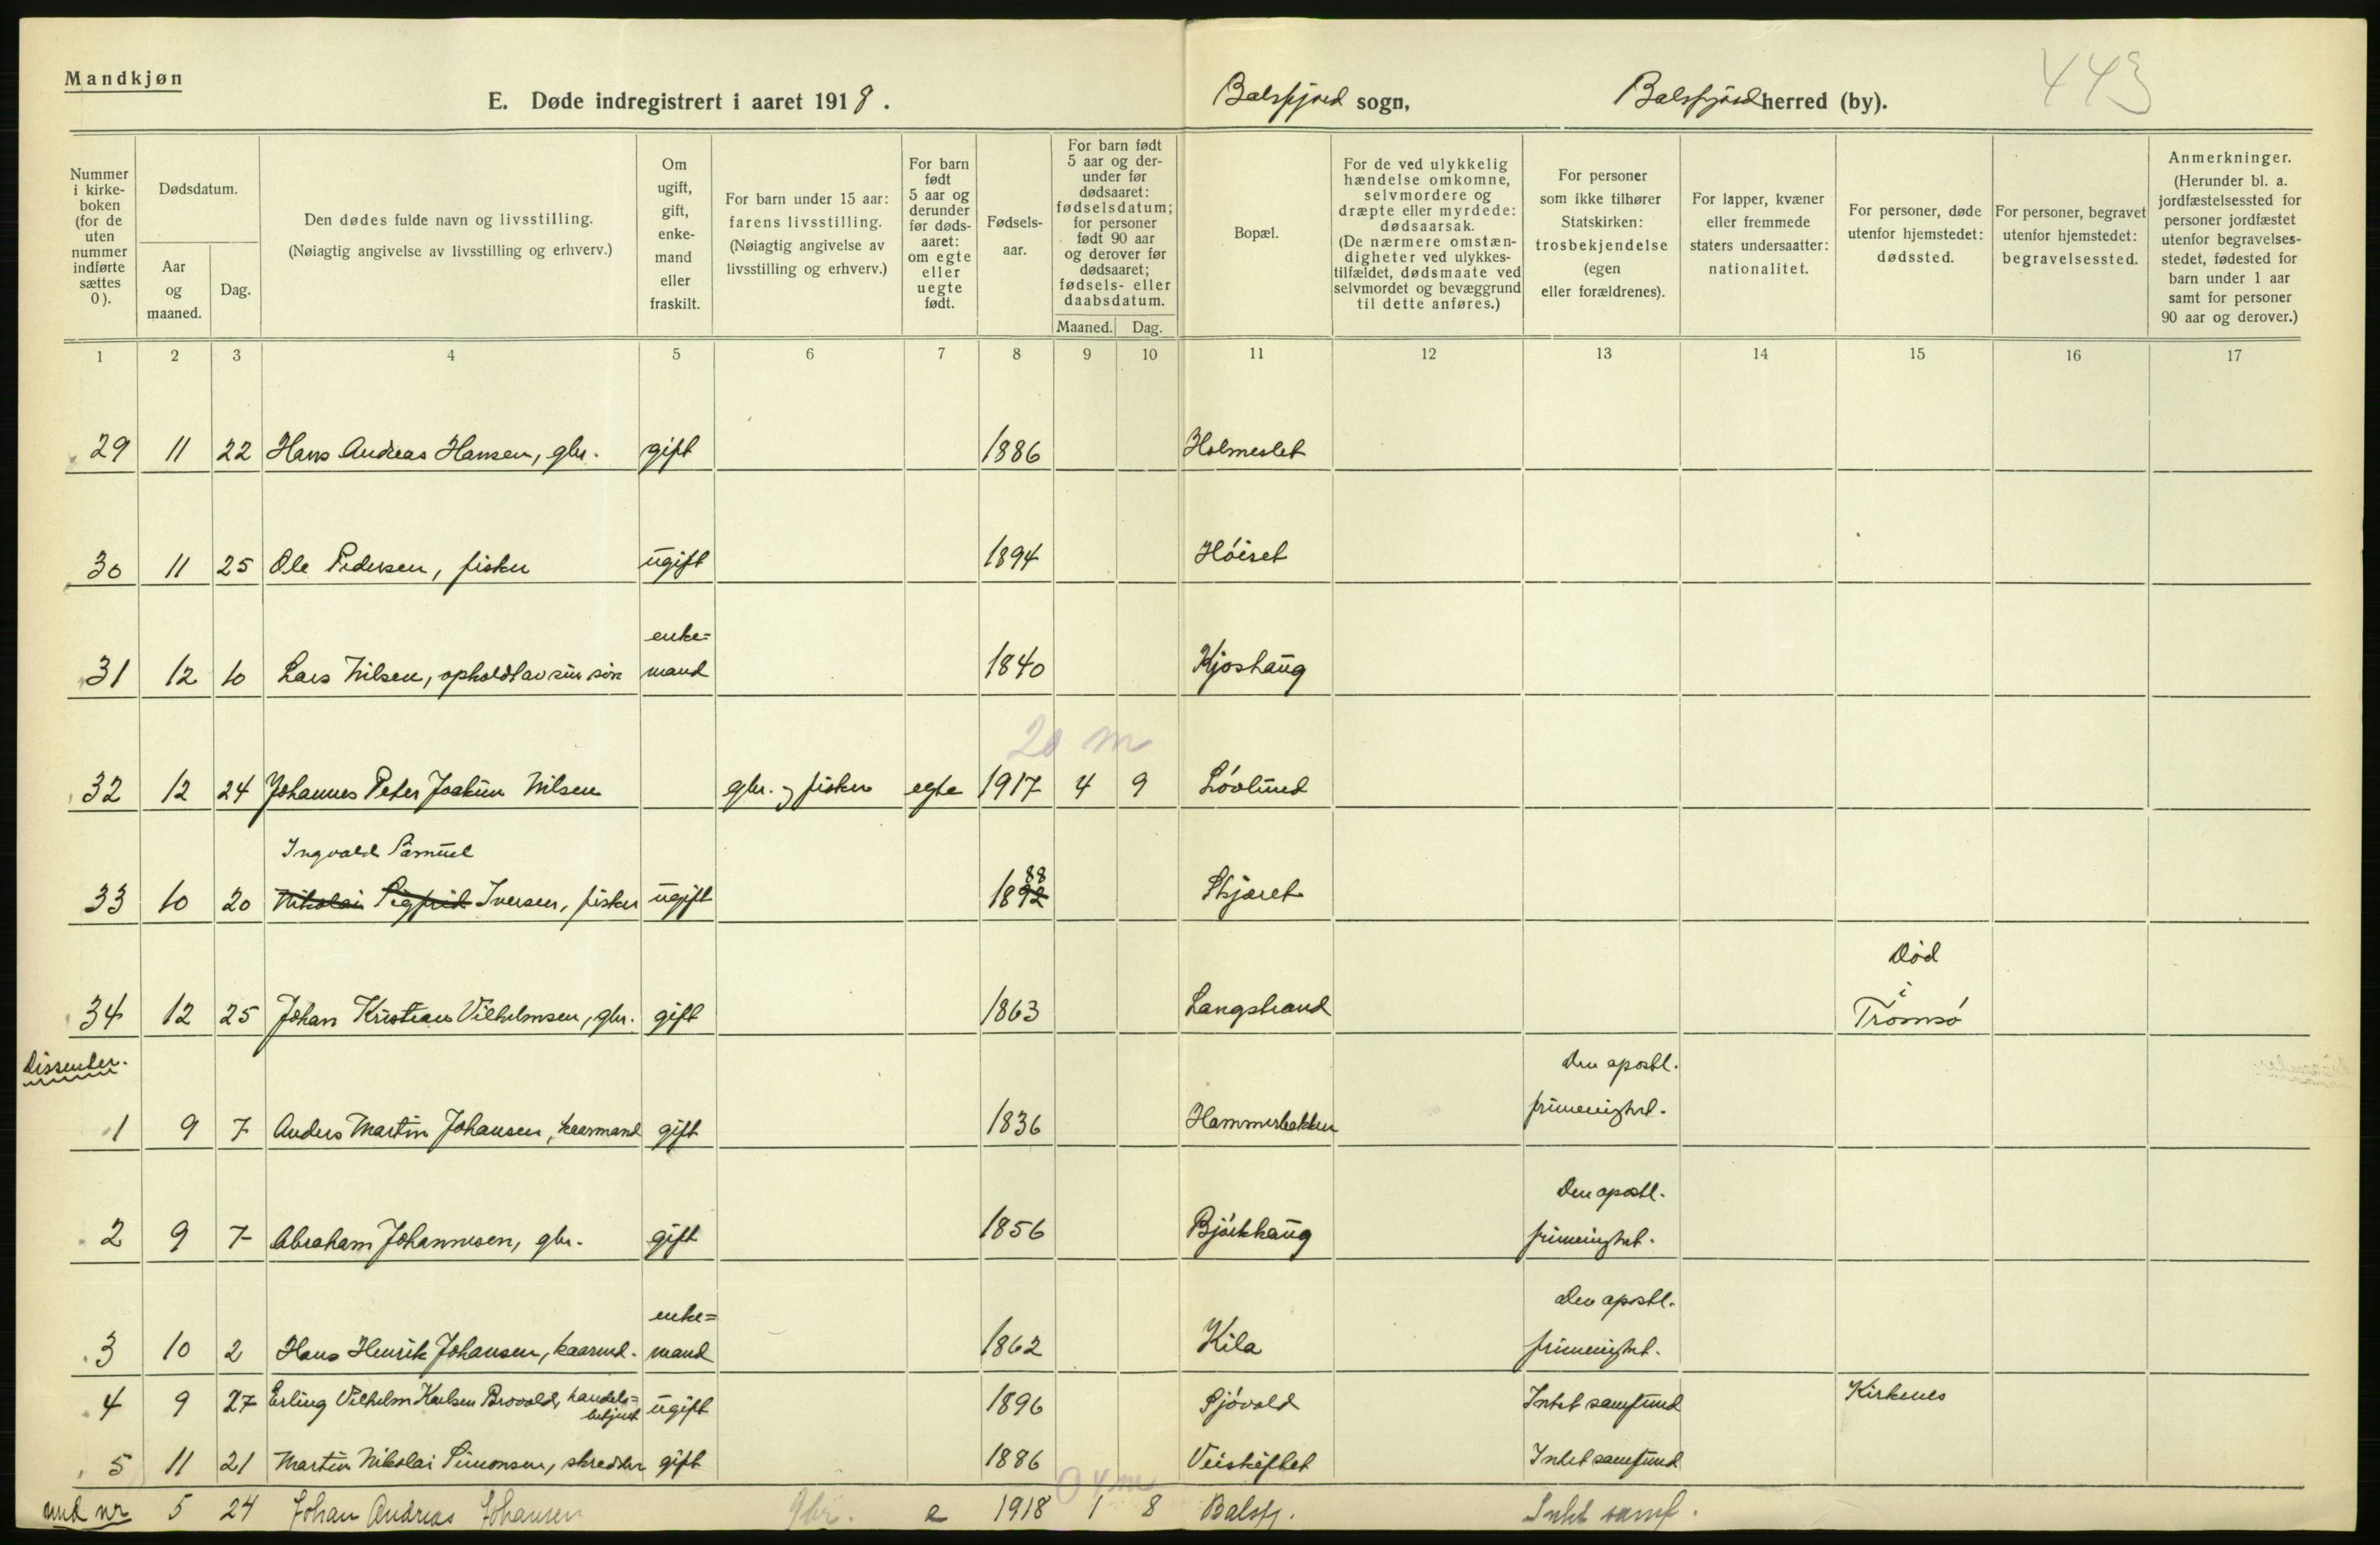 Mandkjøn
E. Døde indregistrert i aaret 1918.
Balsfjord sogn, Balsfjord herred (by).
443
Nummer i kirke-boken (for de uten nummer indførte sættes 0).
Dødsdatum.
Aar og maaned.
Dag.
Den dødes fulde navn og livsstilling.
(Nøiagtig angivelse av livsstilling og erhverv.)
Om ugift, gift, enke-mand eller fraskilt.
For barn under 15 aar: farens livsstilling.
(Nøiagtig angivelse av livsstilling og erhverv.)
For barn født 5 aar og derunder før døds-aaret: om egte eller uegte født.
Fødsels-aar.
For barn født 5 aar og der-under før dødsaaret: fødselsdatum; for personer født 90 aar og derover før dødsaaret; fødsels- eller daabsdatum.
Maaned. Dag.
Bopæl.
For de ved ulykkelig hændelse omkomne, selvmordere og dræpte eller myrdede: dødsaarsak.
(De nærmere omstæn-digheter ved ulykkes-tilfældet, dødsmaate ved selvmordet og bevæggrund til dette anføres.)
For personer som ikke tilhører Statskirken: trosbekjendelse (egen eller forældrenes).
For lapper, kvæner eller fremmede staters undersaatter: nationalitet.
For personer, døde utenfor hjemstedet: dødssted.
For personer, begravet utenfor hjemstedet: begravelsessted.
Anmerkninger.
(Herunder bl. a. jordfæstelsessted for personer jordfæstet utenfor begravelses-stedet, fødested for barn under 1 aar samt for personer 90 aar og derover.)
1 2 3 4 5 6 7 8 9 10 11 12 13 14 15 16 17
29 11 22 Hans Andreas Hansen, gbr. gift 1886 Holmeslet
30 11 25 Ole Pedersen, fisker ugift 1894 Høiset
enke=
31 12 10 Lars Nilsen, opholdt av sin søn mand 1840 Kjoshaug
20 m
32 12 24 Johannes Peter Joakim Nilsen gbr. og fisker egte 1917 4 9 Løvlund
Ingvald Samuel
88
33 10 20 Nikolai Sigfrid Iversen, fisker ugift 1892 Skjæret
Død
i
34 12 25 Johan Kristian Vilhelmsen, gbr. gift 1863 Langstrand Tromsø
Dissenter.
Den apostl.
1 9 7 Anders Martin Johansen, kaarmand gift 1836 Hammerbakken frimenighet.
Den apostl.
2 9 7 Abraham Johannesen, gbr. gift 1856 Bjørkhaug frimenighet.
enke= Den apostl.
3 10 2 Hans Henrik Johansen, kaarmd. mand 1862 Kila frimenighet.
4 9 27 Erling Vilhelm Karlsen Brovold, handels=betjent ugift 1896 Sjøvold Intet samfund Kirkenes
5 11 21 Martin Nikolai Simonsen, skredder gift 1886 Veiskiftet Intet samfund
0 4 m
und nr 5 24 Johan Andreas Johansen gbr. e 1918 1 8 Balsfj. Intet samf.